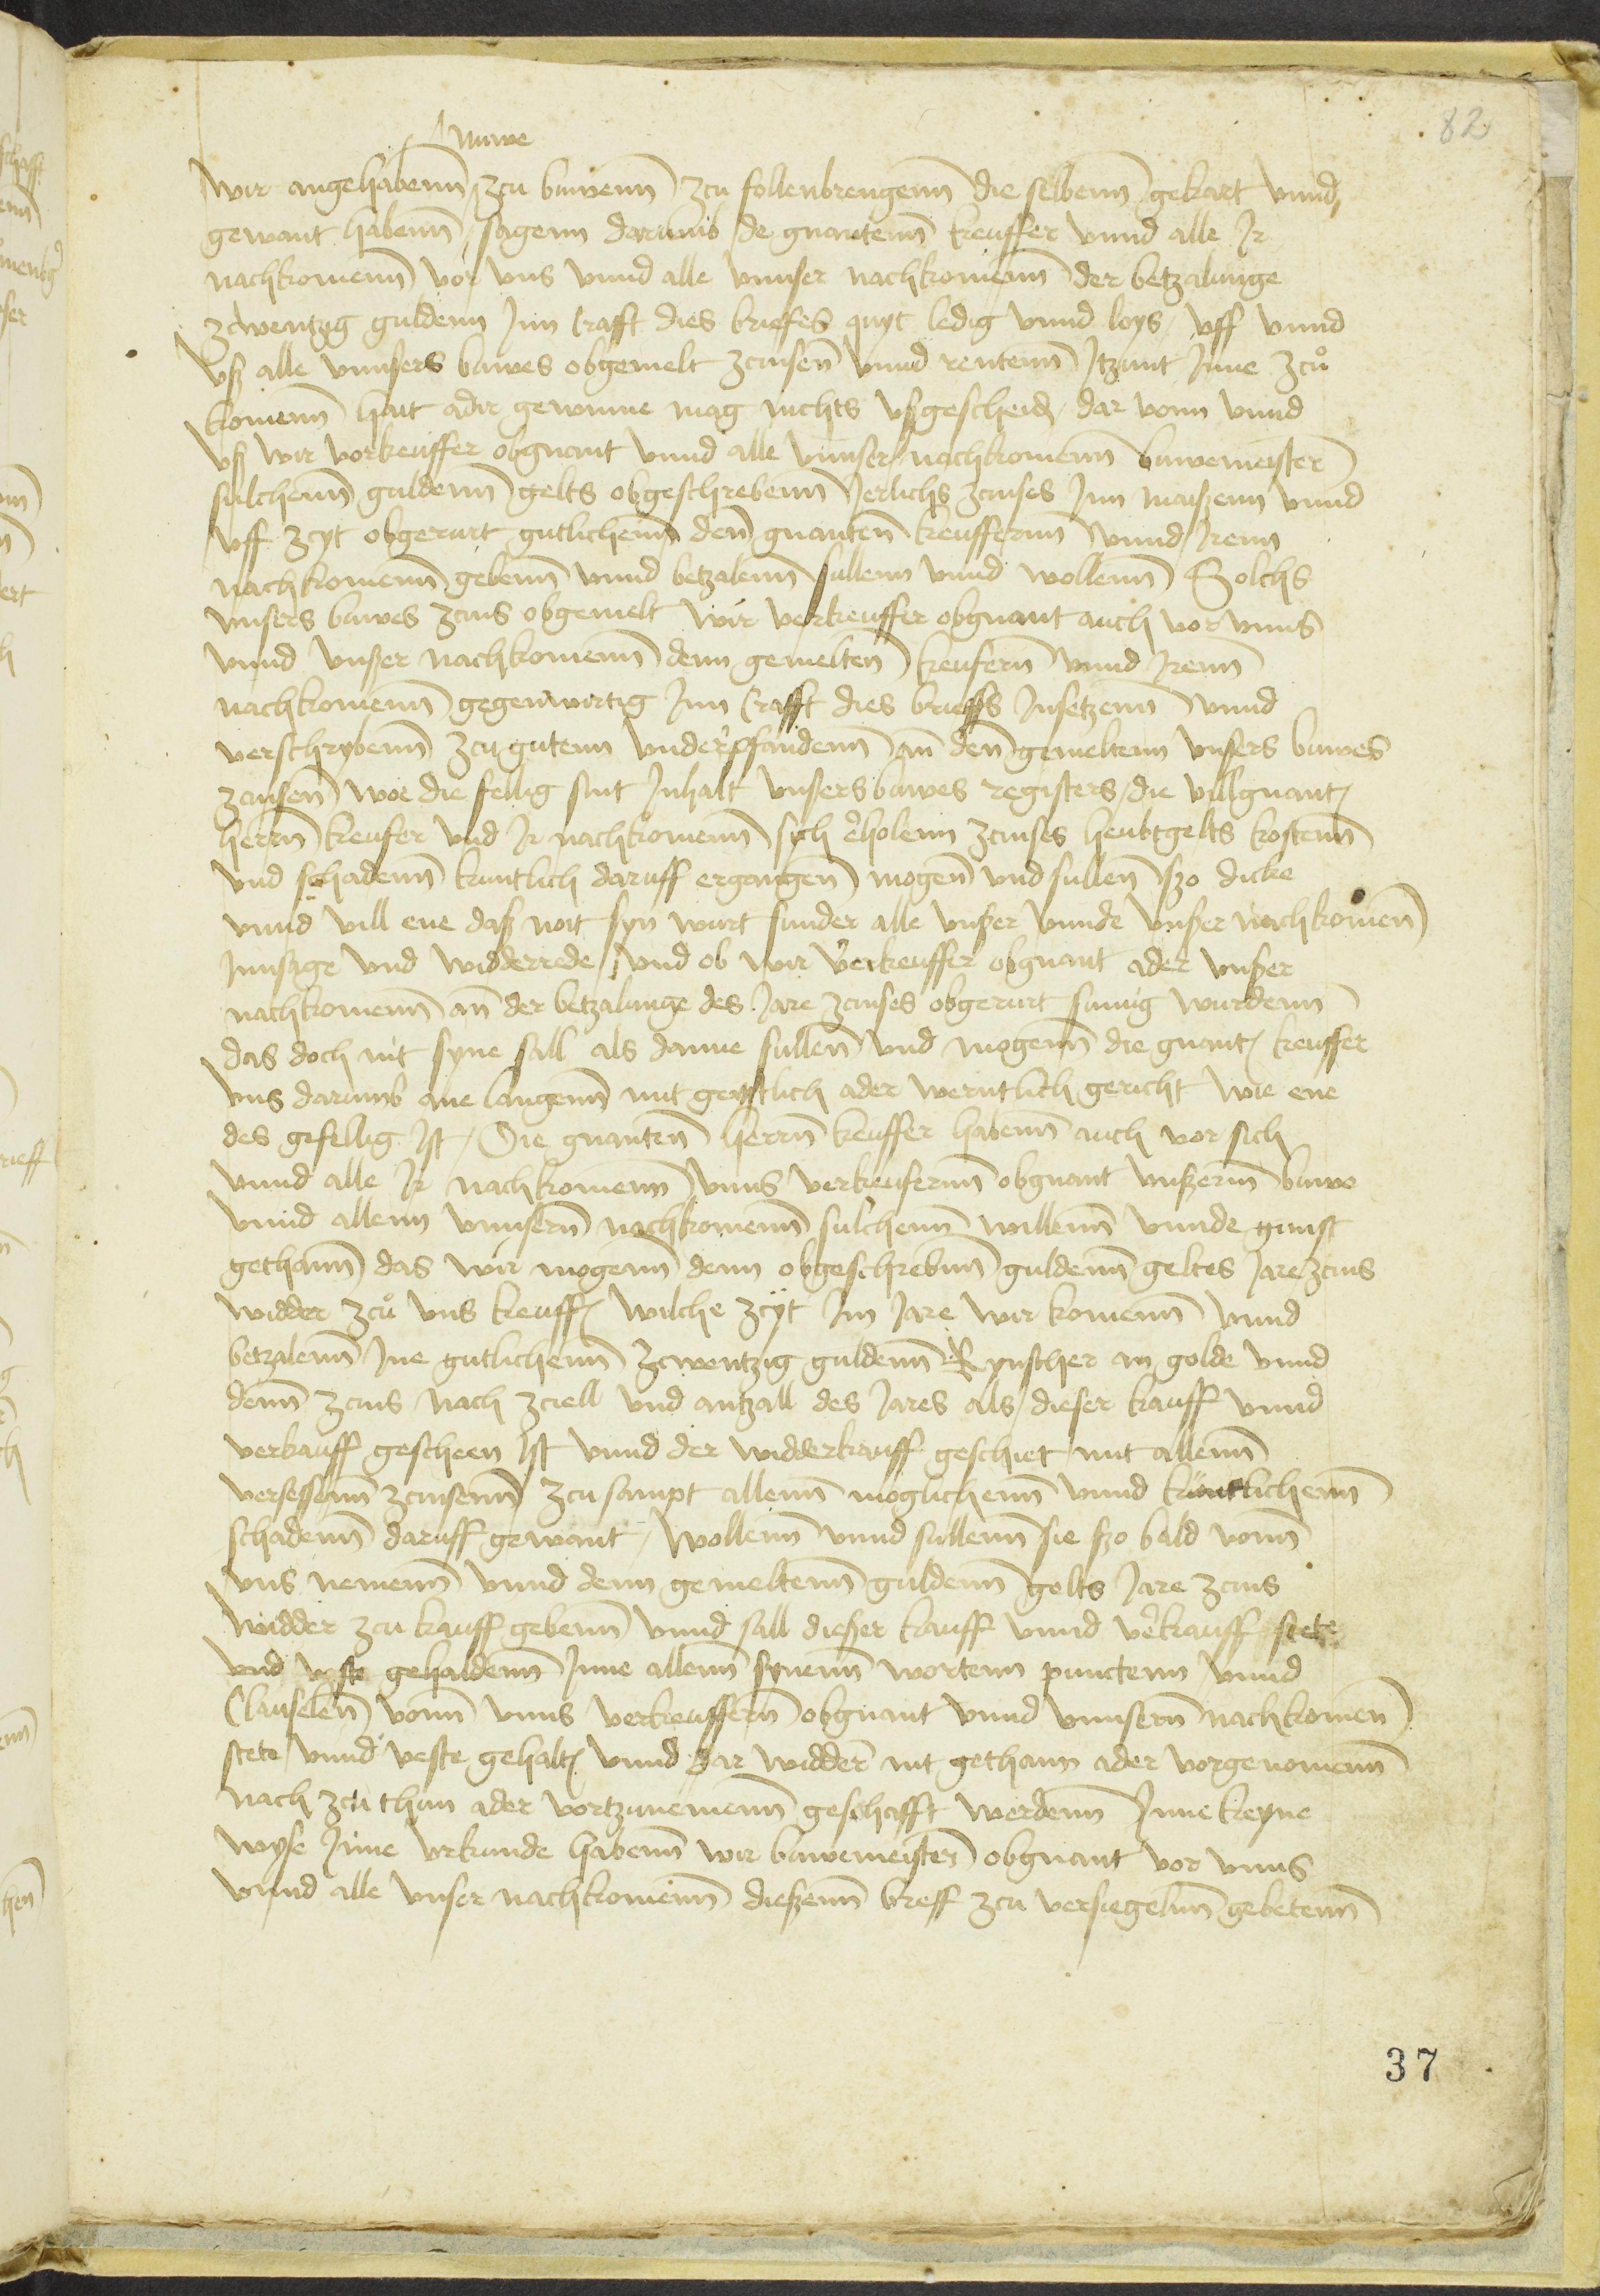 82
Nuwe
wir angehabenn zcu buwenn zcu follenbrengenn die selbenn gekart vnnd
gewant habenn sagenn darumb de gnantenn keuffer vnnd alle Jr
nachkomenn vor vns vnnd alle vnnser nachkomenn der betzalunge
zcwentzig guldenn Jnn Crafft dies briefes quyt ledig vnnd loys vff vnnd
vß alle vnnsers buwes obgemelt zcinsenn vnnd rentenn Jtzunt Jnne zcu
komenn hait ader gewinne mag nichts vßgescheid dar vonn vnnd
vß wir vorkeuffer obgnant vnnd alle vnnser nachkomenn buwemeister
sulchenn guldenn gelts obgeschrebenn Jerlichs zcinses Jnn maißenn vnnd
vff zcyt obgerurt gutlichenn den gnanten keuffernn vnnd Jrenn
nachkomenn gebenn vnnd betzalenn sullenn vnnd wollenn Solchs
vnsers buwes zcins obgemelt wir verkeuffer obgnant auch vor vnns
vnnd vnßer nachkomenn denn gemelten keufern vnnd Jrenn
nachkomenn gegenwirtig Jnn Crafft dies brieffs Jnsetzenn vnnd
verschrybenn zcu gutenn vnderpfandenn an den gemeltenn vnsers buwes
zcinsen woe die fellig sint Jnhalt vnsers buwes registers die villgnant
herrn keufer vnd Jr nachkomenn sich erholenn zcinses heubtgelts kostenn
vnd schadenn kuntlich daruff ergangen mogen vnd sullen szo dicke
vnnd vill ene daß noit syn wurt sunder alle vnßer vnnde vnßer nachkomen
Jnnsage vnd widderrede vnd ob wir verkeuffer obgnant ader vnßer
nachkomenn an der betzalunge des Jare zcinses obgerurt sumig wurdenn
das doch nit syne sall als danne sullen vnd mogenn die gnant keuffer
vns darumb ane langenn mit geystlich ader werntlich gericht wie ene
des gefellig Jst Die gnanten herrn keuffer habenn auch vor sich
vnnd alle Jr nachkomenn vnns verkeufernn obgnant vnßernn buwe
vnnd allenn vnnsern nachkomenn sulchenn willenn vnnde gunst
gethann das wir mogenn denn obgeschrebnn guldenn geltes Jare zcins
widder zcu vns keuff wilche zcyt Jm Jare wir komenn vnnd
betzalenn Jne gutlichenn zcwentzig guldenn Rynscher an golde vnnd
denn zcins nach zciell vnd antzall des Jares als dieser kauff vnnd
verkauff gescheen Jst vnnd der widderkauff geschiet mit allenn
versessenn zcinsenn zcu sampt allenn moglichenn vnnd kuntlichenn
schadenn daruff gewant wollenn vnnd sullenn sie szo bald vonn
vns nemenn vnnd denn gemeltenn guldenn gelts Jare zcins
widder zcu kauff gebenn vnnd sall dießer kauff vnnd verkauff stete
vnd veste gehaldenn Jnne allenn synenn wortenn punctenn vnnd
Clauselen vonn vnns verkeuffern obgnant vnnd vnnsern nachkomen
stete vnnd veste gehalt vnnd dar widder nit gethann ader vorgenomenn
nach zcu thun ader vortzunemenn geschafft werdenn Jnne keyne
wyse Jnne vrkunde habenn wir buwemeister obgnant vor vnns
vnnd alle vnser nachkomenn dießenn breff zcu versiegelnn gebetenn
37